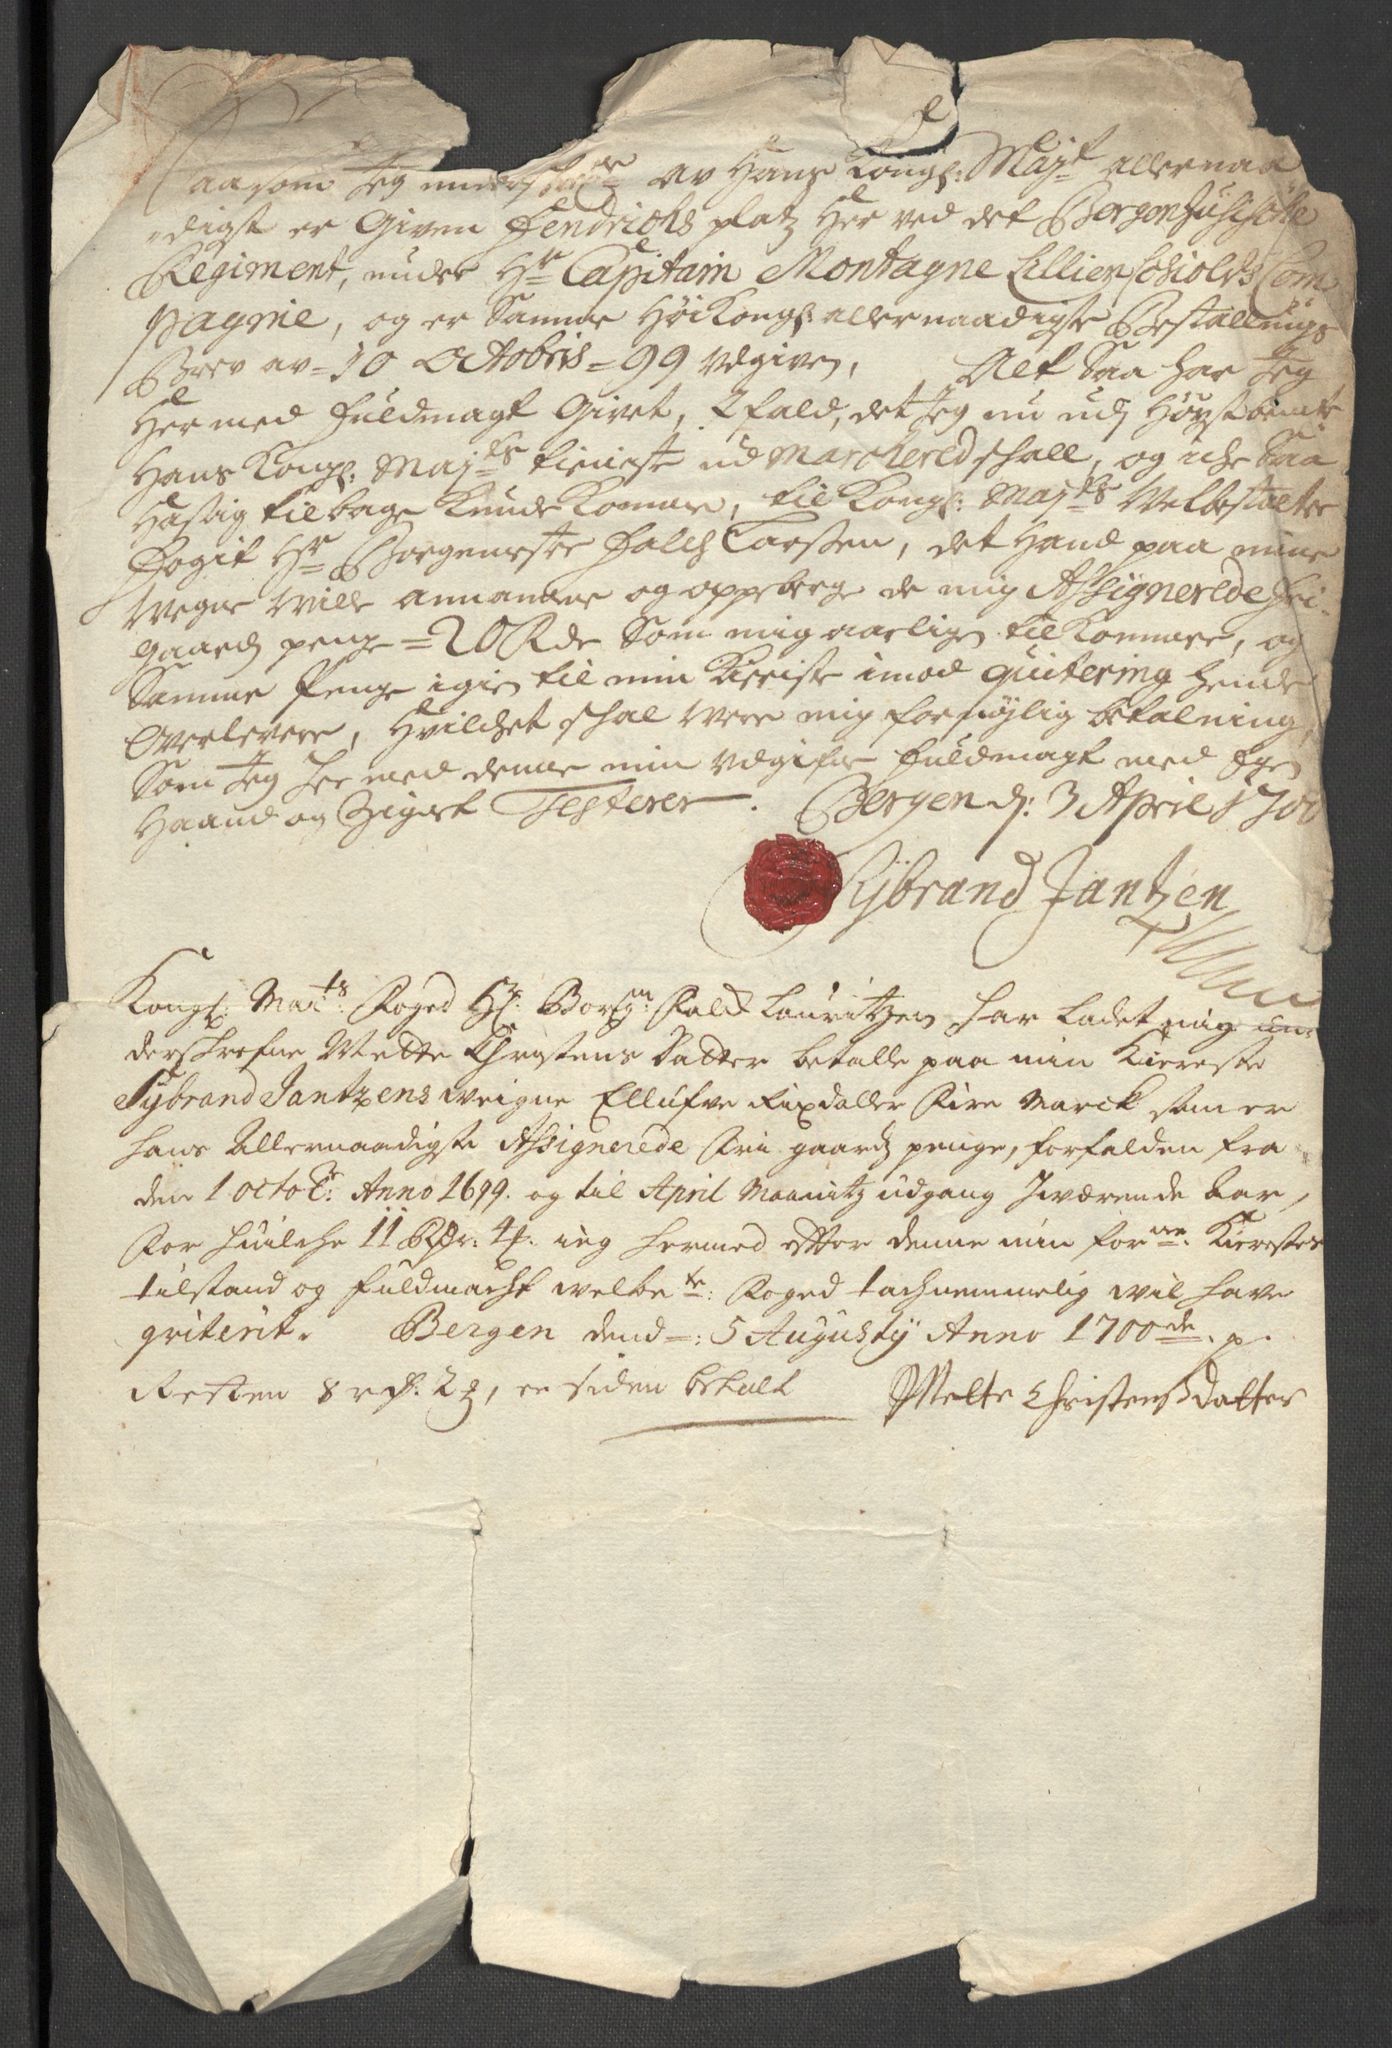 Saasom Jeg underschrefne av Hans Kongl: Mayt allernaa
digst er Given Fendrichs platz Her ved det Bergenhusische
Regiment, under Hr Capitain Montagne Lillienschiolds Com
pagnie, og er Samme Høi Kongl: allernaadigste Bestallings
Brev av = 10 Octobris = 99 Udgiven, Alt Saa har Jeg
Her med fuldmagt Givet, I fald, det Jeg nu udj Høystbemte
Hans Kongl: Mayts tieniste ud Marchered schall, og iche Saa
Hastig tilbage Kunde Komme, til Kongl: Mayts Welbestalter
Fogit Hr Borgemester Falch Larssen, det Hand paa mine
Wegne Wille annamme og oppeberge de mig Assignerede fri-
gaards penge = 20 Rdr Som mig aarligen tilKommer, og
Samme Penge igien til min Kieriste imod quitering hende
Overlevere, Hvilchet schal Were mig fornøylig betalning,
Som Jeg her med denne min Udgifne fuldmagt med Egen
Haand og Zignet Testerer. Bergen dj: 3 April 1700
Sybrand Jantzen
Kongl: Maits. Foged Hr. Borgm. Falch Lauritzen har Ladet mig un-
derschrefne Mette Christens Datter betalle paa min Kiereste
Sybrand Jantzens Weigne Ellufve Rixdaller Fire Marck som er
hans Allernaadigste Assignerede Frii gaards penge, forfalden fra
den 1 Octobr. Anno 1699. og til April Maanitz udgang Jwærende Aar,
For huilche 11 Rdr. 4 . ieg hermed effter denne min forne. Kierestes
tilstand og fuldmacht welbete: Foged tachnemmelig wil have
qviterit. Bergen dend =: 5 Augusty Anno 1700de. p.
Resten 8 rd. 2 , er siden betalt
Mette Christensdatter